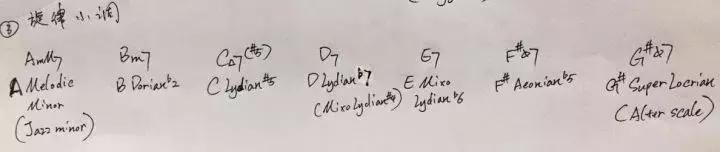 ③ 旋律小调
AmM7 Bm7 C△7(#5) D7 E7 F#ø7 G#ø7
A Melodic B Dorian♭2 C Lydian#5 D Lydian♭7 E Mixo F# Aeonian♭5 G# Super Locrian
Minor (Mixo Lydian#4) Lydian♭6 (Alter scale)
(Jazz minor)